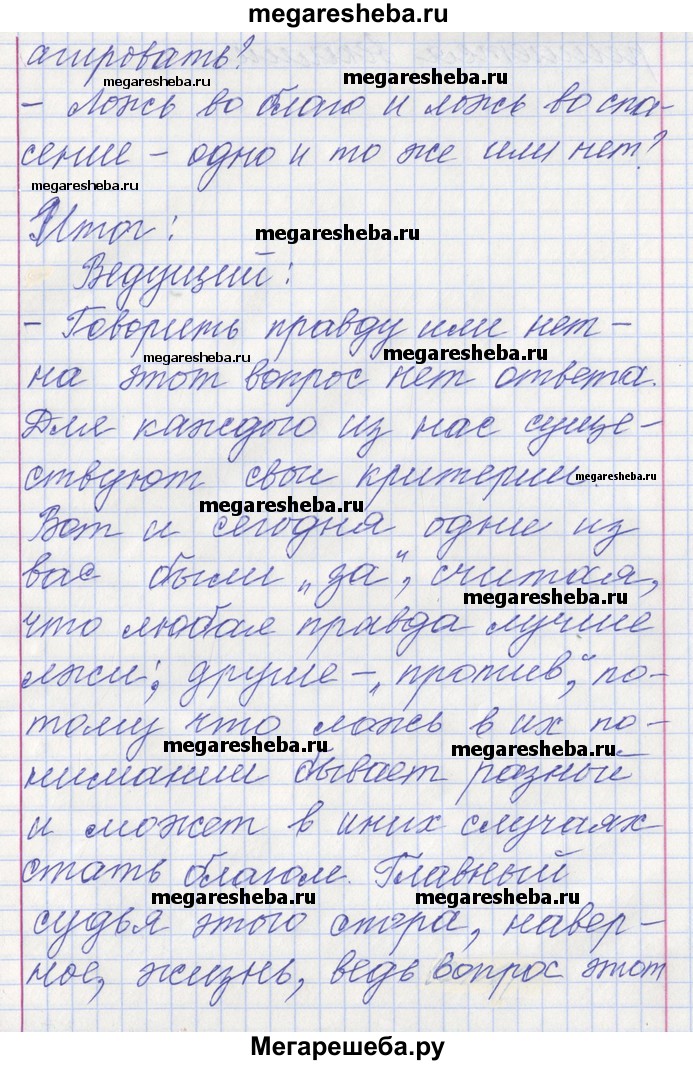 megaresheba.ru
агировать?
megaresheba.ru megaresheba.ru
- Ложь во благо и ложь во спа-
сение - одно и то же или нет?
megaresheba.ru
Итог:
megaresheba.ru
Ведущий:
- Говорить правду или нет -
megaresheba.ru megaresheba.ru
на этот вопрос нет ответа.
Для каждого из нас суще-
ствуют свои критерии.
megaresheba.ru
megaresheba.ru
Вот и сегодня одни из
вас были „за“, считая,
megaresheba.ru
что любая правда лучше
лжи; другие - „против“, по-
тому что ложь в их по-
megaresheba.ru megaresheba.ru
нимании бывает разной
и может в иных случаях
стать благом. Главный
megaresheba.ru megaresheba.ru
судья этого спора, навер-
ное, жизнь, ведь вопрос этот
Мегарешеба.ру